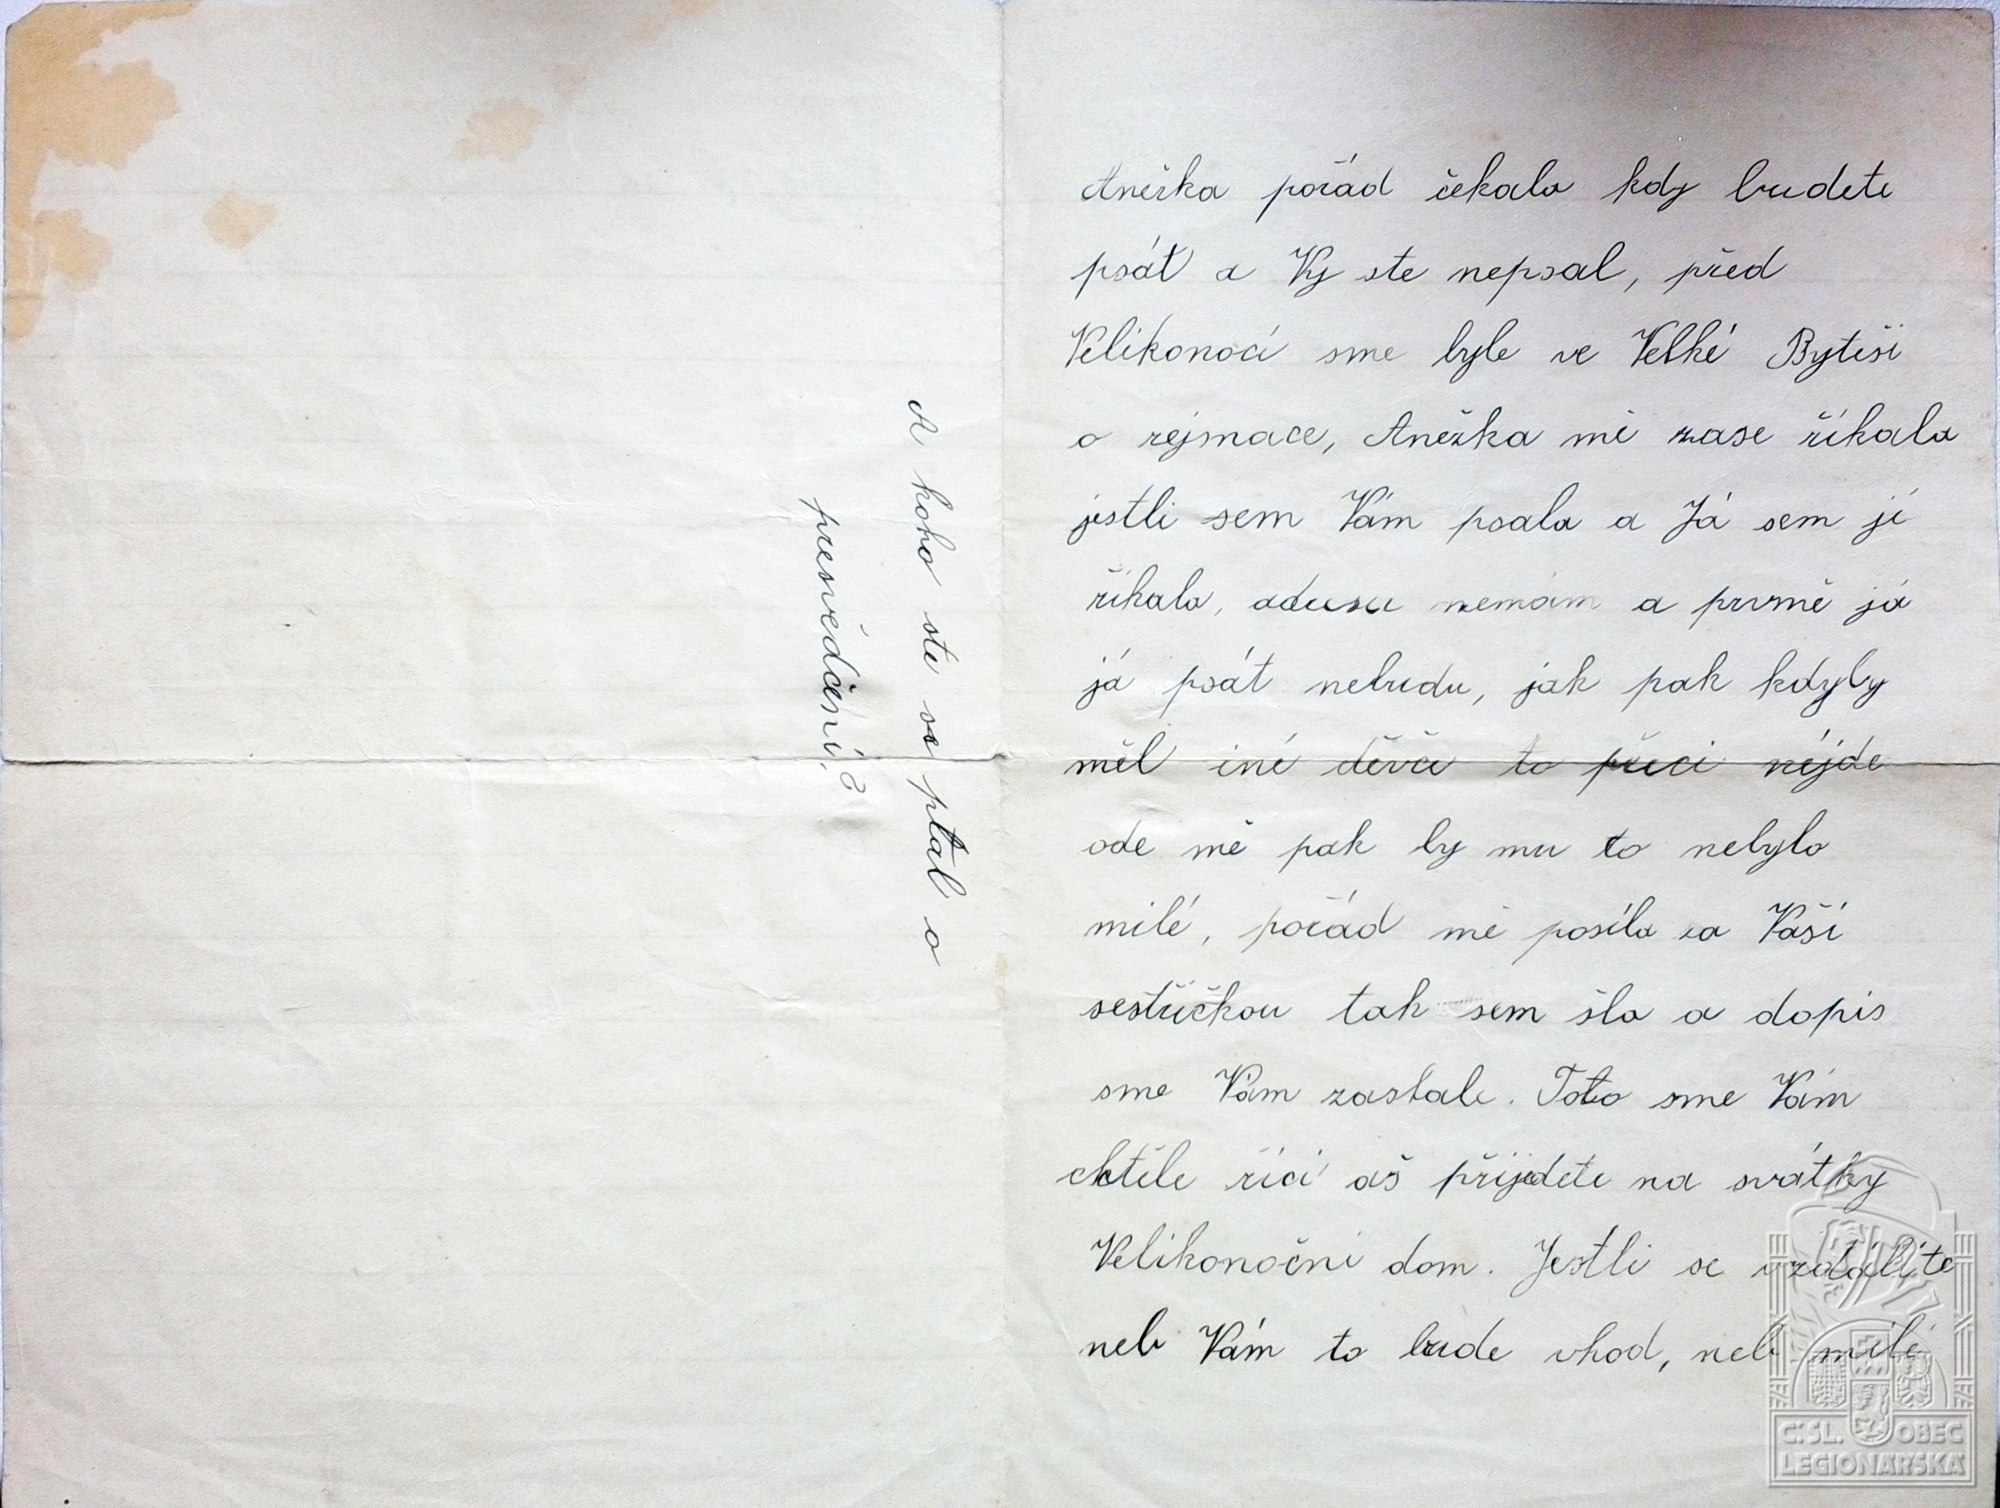 A koho ste se ptal o
presvědčení?
Anežka pořád čekala kdy budete
psát a Vy ste nepsal, před
Velikonoci sme byle ve Velké Byteši
o rejmace, Anežka mě zase říkala
jestli sem Vám psala a Já sem ji
říkala, adusu nemám a prvně já
já psát nebudu, jak pak kdyby
měl iné děvče to přeci néjde
ode mě pak by mu to nebylo
milé, pořád mě posíla za Vaší
sestřičkou tak sem šla a dopis
sme Vám zaslale. Toto sme Vám
chtěle říci aš přijedete na svátky
Velikonoční dom. Jestli se vzdálíte
neb Vám to bude vhod, neb milé
Č. SL. OBEC
LEGIONÁŘSKÁ